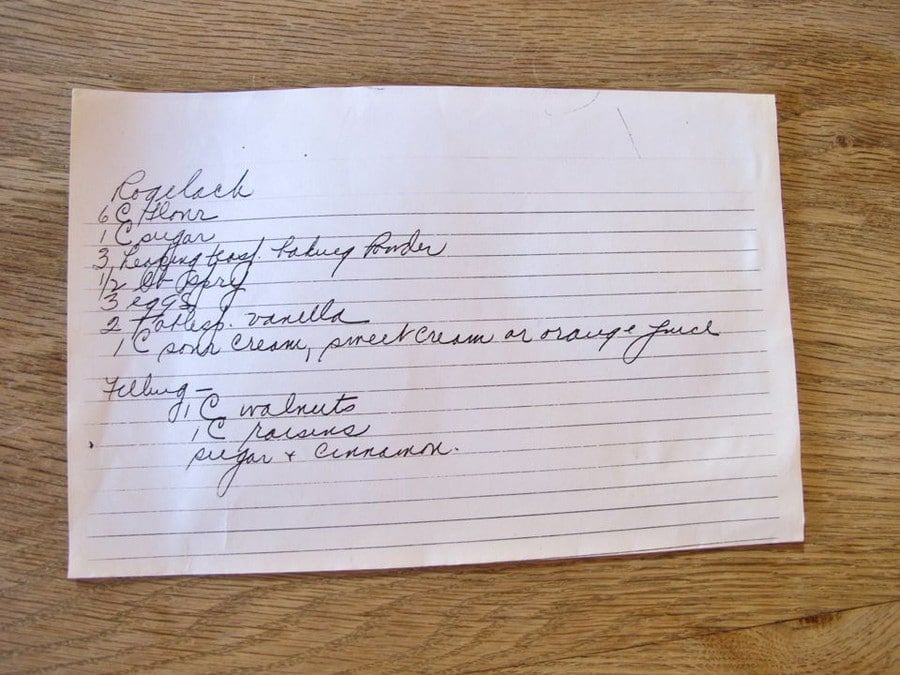 Rogelach
6 C Flour
1 C sugar
3 heaping teasp. baking Powder
1/2 lb Spry
3 eggs
2 tablesp. vanilla
1 C sour cream, sweet cream or orange juice
Filling -
1 C walnuts
1 C raisins
sugar + cinnamon.